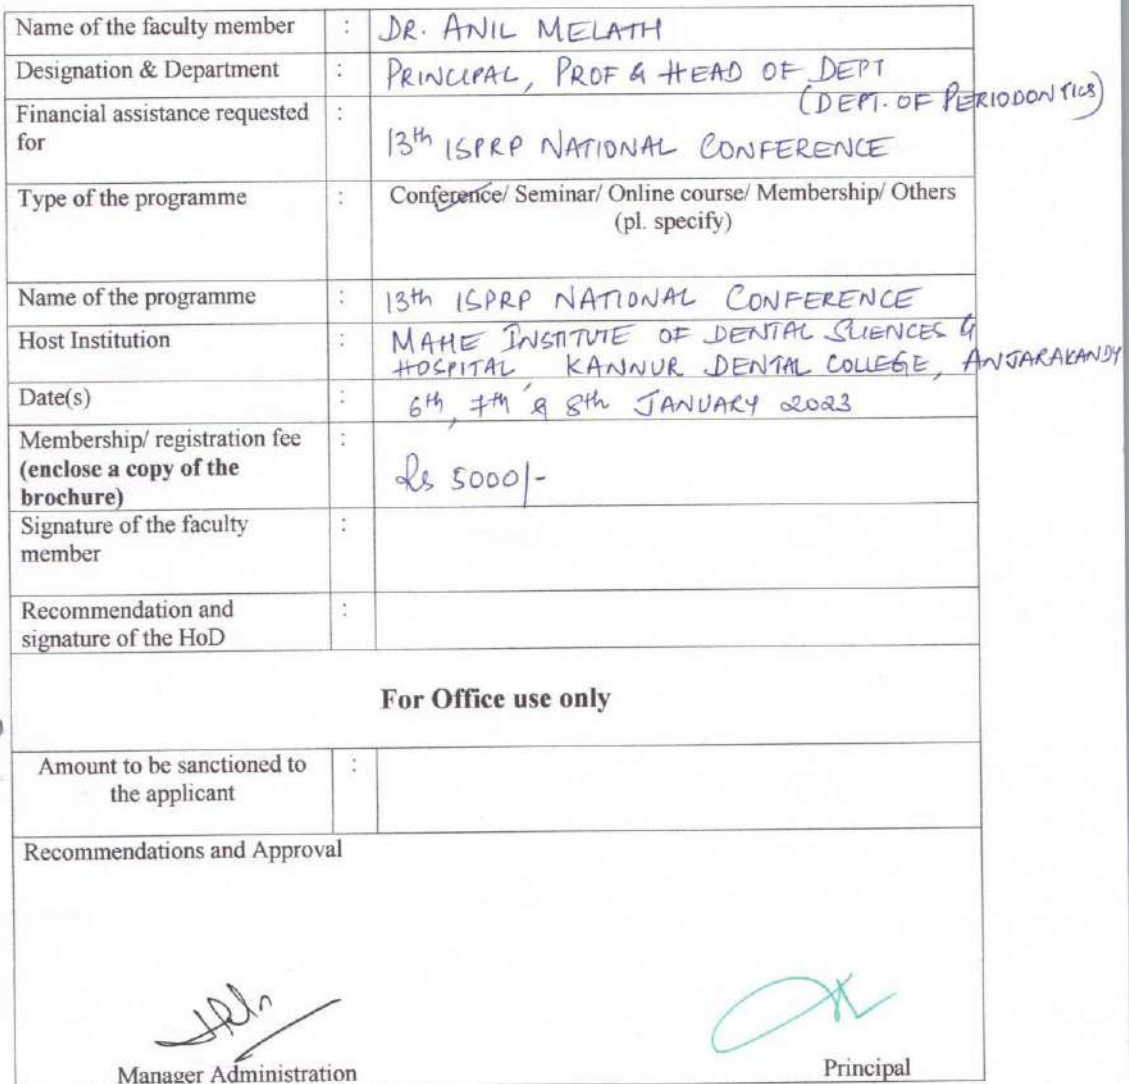 Name of the faculty member : DR. ANIL MELATH
Designation & Department : PRINCIPAL, PROF & HEAD OF DEPT
(DEPT. OF PERIODONTICS)
Financial assistance requested :
for
13th ISPRP NATIONAL CONFERENCE
Type of the programme : Conference/ Seminar/ Online course/ Membership/ Others
(pl. specify)
Name of the programme : 13th ISPRP NATIONAL CONFERENCE
Host Institution : MAHE INSTITUTE OF DENTAL SCIENCES &
HOSPITAL, KANNUR DENTAL COLLEGE, ANJARAKANDY
Date(s) : 6th, 7th & 8th JANUARY 2023
Membership/ registration fee :
(enclose a copy of the
brochure)
Rs 5000/-
Signature of the faculty :
member
Recommendation and :
signature of the HoD
For Office use only
Amount to be sanctioned to :
the applicant
Recommendations and Approval
Manager Administration Principal